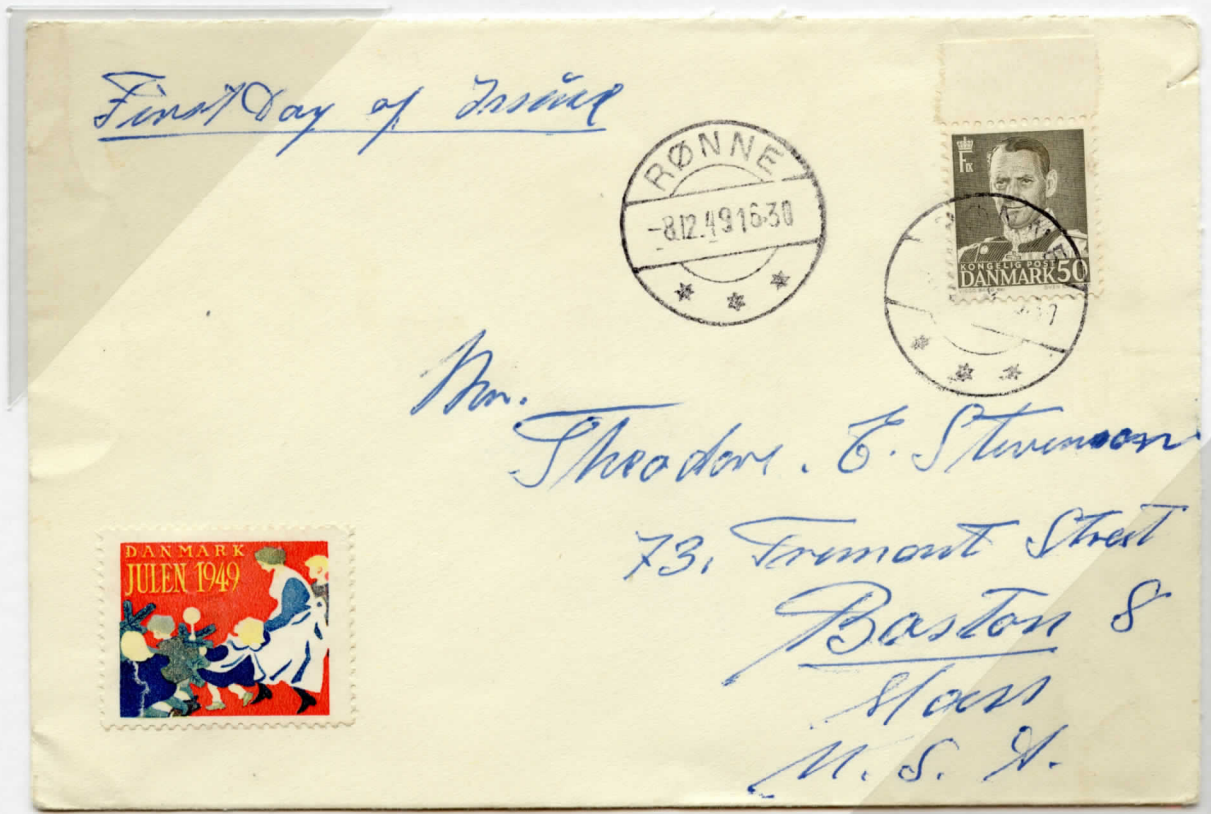 First Day of Issue
RØNNE
-8.12.49 16.30
F IX
KONGELIG POST
DANMARK 50
Mr.
Theodore. E. Stevenson
73. Tremont Street
Boston 8
Mass
U. S. A.
DANMARK
JULEN 1949